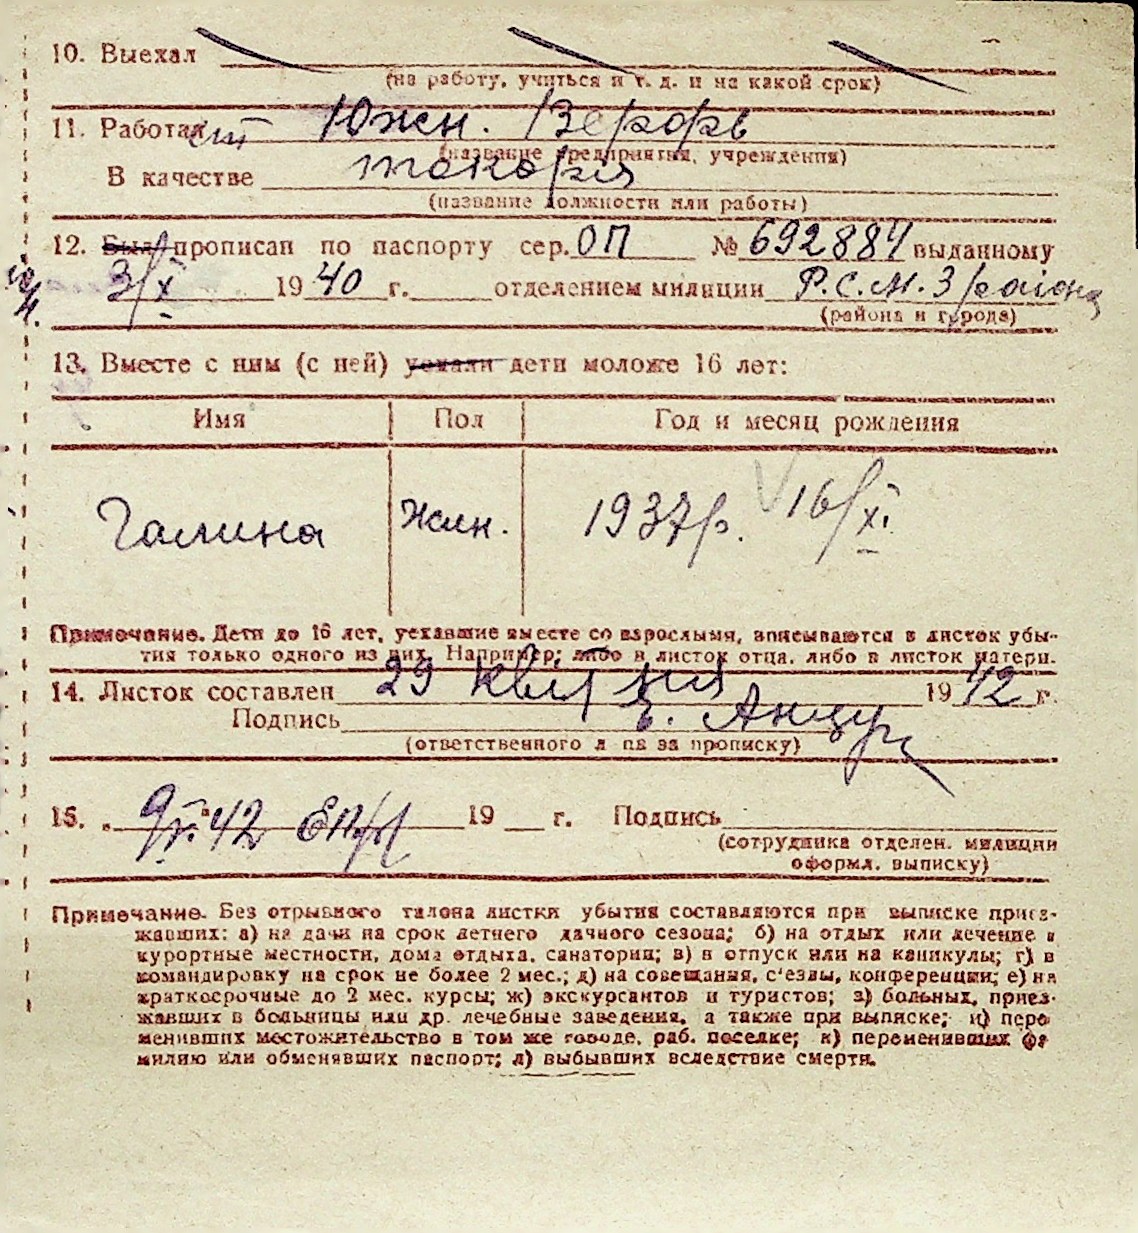 10. Выехал
(на работу, учиться и т. д. и на какой срок)
11. Работает Южн. Верфь
(название предприятия, учреждения)
В качестве токаря
(название должности или работы)
12. Был прописан по паспорту сер. ОП № 692884 выданному
3/X 1940 г. отделением милиции Р.С.М. 3 района
(района и города)
13. Вместе с ним (с ней) уехали дети моложе 16 лет:
Имя Пол Год и месяц рождения
Галина жін. 1937 р. 16/XI.
Примечание. Дети до 16 лет, уехавшие вместе со взрослыми, вписываются в листок убы-
тия только одного из них. Например: либо в листок отца, либо в листок матери.
14. Листок составлен 29 квітня 1942 г.
Подпись
(ответственного л за прописку)
15. 9/V 42 19 г. Подпись
(сотрудника отделен. милиции
оформл. выписку)
Примечание. Без отрывного талона листки убытия составляются при выписке приез-
жавших: а) на дачи на срок летнего дачного сезона; б) на отдых или лечение в
курортные местности, дома отдыха, санатории; в) в отпуск или на каникулы; г) в
командировку на срок не более 2 мес.; д) на совещания, с'езды, конференции; е) на
краткосрочные до 2 мес. курсы; ж) экскурсантов и туристов; з) больных, приез-
жавших в больницы или др. лечебные заведения, а также при выписке; и) пере
менивших местожительство в том же городе, раб. поселке; к) переменивших фа
милию или обменявших паспорт; л) выбывших вследствие смерти.